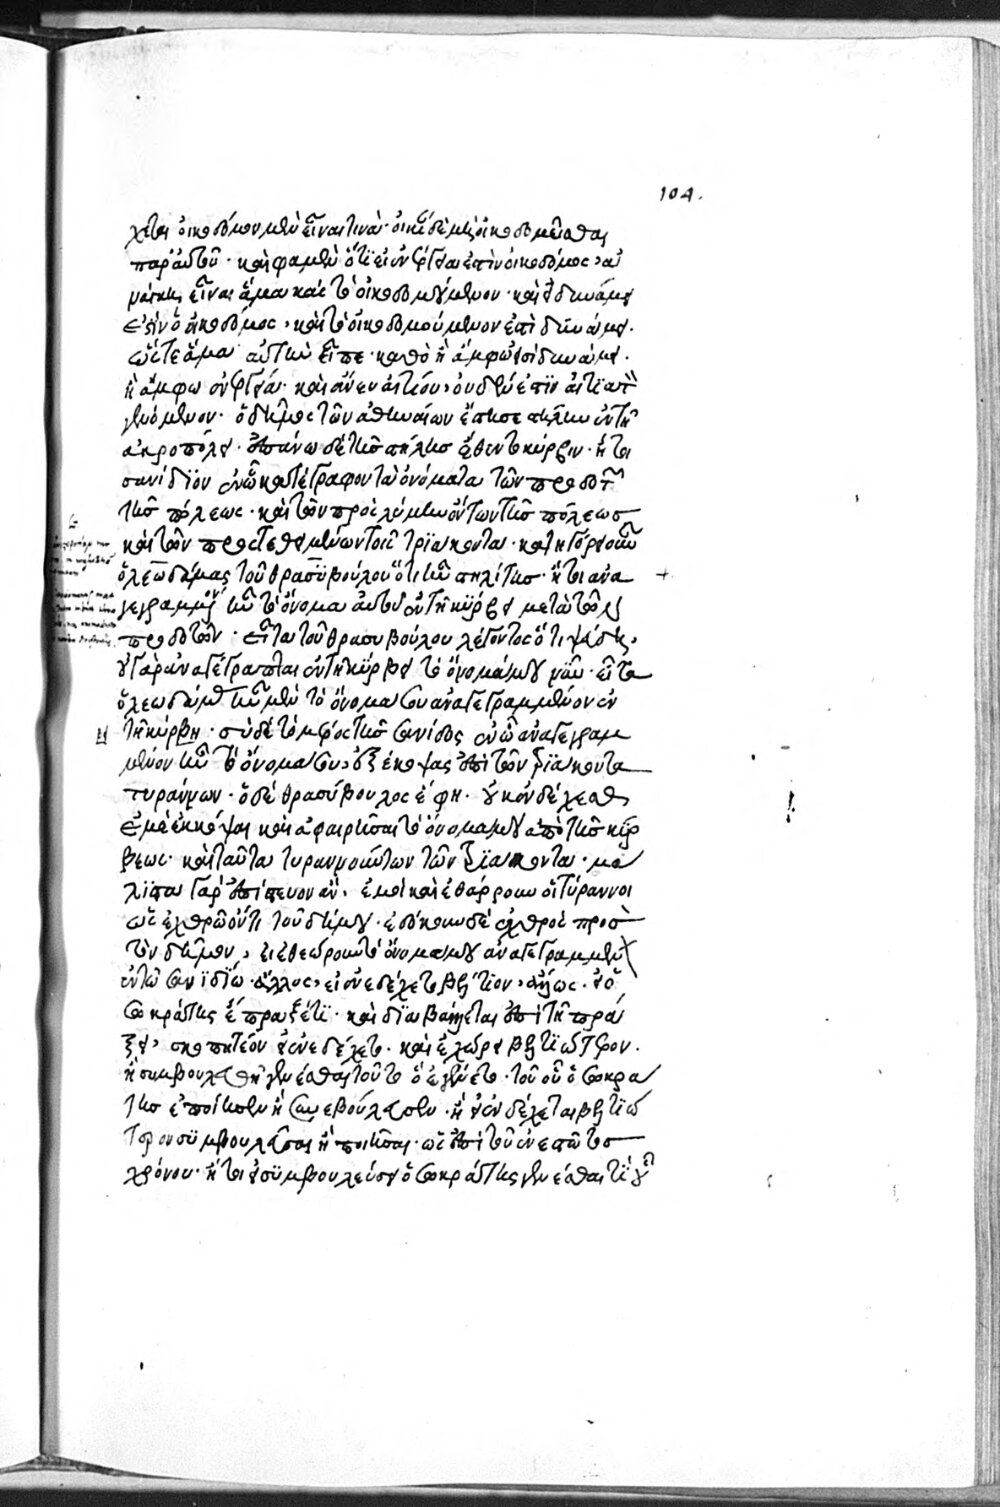 104.
χεται οἰκοδόμον μὲν εἶναι τινὰ· οἰκίαν δὲ μὴ οἰκοδομεῖσθαι
παρ' αὐτοῦ· καὶ φαμὲν ὅτι εἰ ἐνεργείᾳ ἐστὶν οἰκοδόμος, ἀ
νάγκη εἶναι ἅμα καὶ τὸ οἰκοδομούμενον· καὶ εἰ δυνάμει
ἐστὶν ὁ οἰκοδόμος, καὶ τὸ οἰκοδομούμενον ἐστὶ δυνάμει.
ὥστε ἅμα αὐτὴν εἶπε· καθὸ ἢ ἄμφω εἰσὶ δυνάμει.
ἢ ἄμφω ἐνεργείᾳ. καὶ ἄνευ αἰτίου, οὐδέν ἐστιν αἰτιατὸν
γενόμενον. ὁ δῆμος τῶν ἀθηναίων ἔστησε στήλην ἐν τῇ
ἀκροπόλει. ἐπάνω δὲ τῆς στήλης ἔθεντο κύρβιν· ἤτοι
σανίδιον ἐν ᾧ κατέγραφον τὰ ὀνόματα τῶν προδοτῶν
τῆς πόλεως· καὶ τῶν προσλύμην ὄντων τῆς πόλεως
καὶ τῶν προστεθειμένων τοῖς τριάκοντα· κατηγόρει οὖν
ὁ λεωδάμας τοῦ θρασυβούλου ὅτι ἦν στηλίτης· ἤτοι ἀνα
γεγραμμένον ἦν τὸ ὄνομα αὐτοῦ ἐν τῇ κύρβει μετὰ τῶν
προδοτῶν. εἶτα τοῦ θρασυβούλου λέγοντος ὅτι ψεύδῃ,
οὐ γὰρ ἀναγέγραπται ἐν τῇ κύρβει τὸ ὄνομά μου νῦν. εἶτα
ὁ λεωδάμας ἦν μὲν τὸ ὄνομα σου ἀναγεγραμμένον ἐν
τῇ κύρβῃ· σὺ δὲ τὸ μέρος τῆς σανίδος ἐν ᾧ ἀναγεγραμ
μένον ἦν τὸ ὄνομα σου, ἐξέκοψας ἐπὶ τῶν τριάκοντα
τυράννων. ὁ δὲ θρασύβουλος ἔφη. οὐκ ἐνδέχεσθαι
ἐμὲ ἐκκόψαι καὶ ἀφαιρῆσαι τὸ ὄνομα μου ἀπὸ τῆς κύρ
βεως· καὶ ταῦτα τυραννούντων τῶν τριάκοντα. μά
λιστα γὰρ ἐπίστευον ἂν, ἐμοὶ καὶ ἐθάρρουν οἱ τύραννοι
ὡς ἐχθρῷ ὄντι τοῦ δήμου. ἐδόκουν δὲ ἐχθρὸς πρὸς
τὸν δῆμον, εἰ ἐθεώρουν τὸ ὄνομα μου ἀναγεγραμμένον
ἐν τῷ σανιδίῳ. ἄλλος, εἰ ἐνεδέχετο βέλτιον, ἄλλως. εἰ ὁ
σωκράτης ἔπραξέ τι. καὶ διαβάλλεται ἐπὶ τῇ πρά
ξει, σκοπητέον εἰ ἐνεδέχετο. καὶ ἐχώρει βελτιώτερον.
ἢ συμβουλευθῆ γενέσθαι τοῦτο ὃ ἐγένετο. τοῦ οὗ ὁ σωκρά
της ἐποίησεν ἢ συνεβούλευσεν. ἢ εἰ ἐνδέχεται βελτιώ
τερον συμβουλεῦσαι ἢ ποιῆσαι. ὡς ἐπὶ τοῦ ἐνεστῶτος
χρόνου· ἤτοι εἰ συμβουλεύσει ὁ σωκράτης γενέσθαι τι